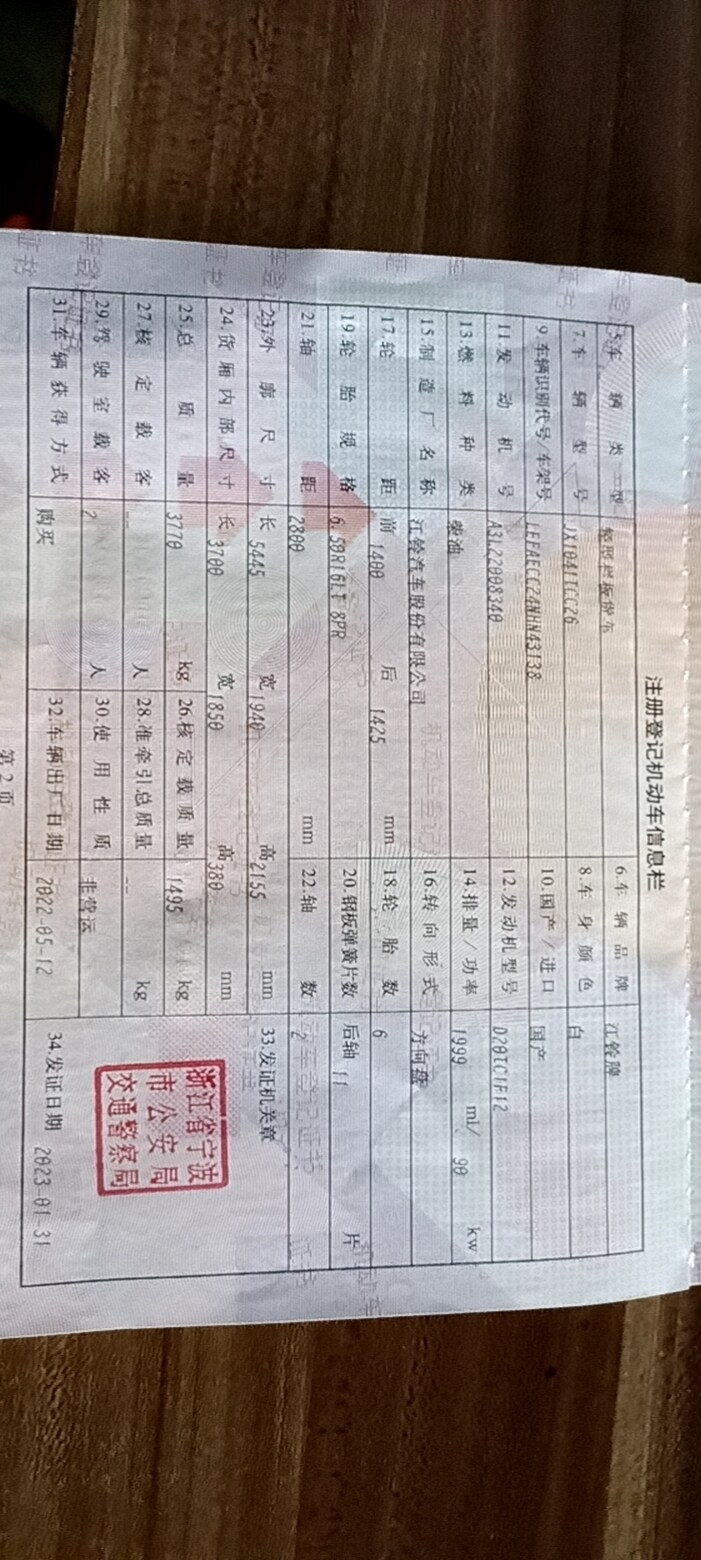 注册登记机动车信息栏
5.车辆类型 轻型栏板货车 6.车辆品牌 江铃牌
7.车辆型号 JX1041TCC26 8.车身颜色 白
9.车辆识别代号/车架号 LEFAECC24NHN43138 10.国产/进口 国产
11.发动机号 A3L22008340 12.发动机型号 D20TC1F12
13.燃料种类 柴油 14.排量/功率 1999 ml/ 90 kw
15.制造厂名称 江铃汽车股份有限公司 16.转向形式 方向盘
17.轮距 前 1400 后 1425 mm 18.轮胎数 6
19.轮胎规格 6.50R16LT 8PR 20.钢板弹簧片数 后轴 11 片
21.轴距 2800 mm 22.轴数 2
23.外廓尺寸 长 5445 宽 1940 高 2155 mm 33.发证机关章
24.货厢内部尺寸 长 3700 宽 1850 高 380 mm
25.总质量 3770 kg 26.核定载质量 1495 kg
27.核定载客 人 28.准牵引总质量 -- kg
29.驾驶室载客 2 人 30.使用性质 非营运
31.车辆获得方式 购买 32.车辆出厂日期 2022-05-12 34.发证日期 2023-01-31
浙江省宁波
市公安局
交通警察局
第2页